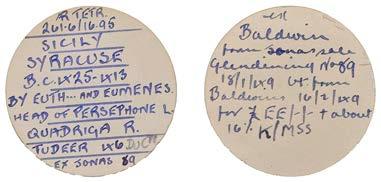 R TETR.
261.6/16.95
SICILY
SYRACUSE
B.C. 425-413
BY EUTH... AND EUMENES.
HEAD OF PERSEPHONE L.
QUADRIGA R.
TUDEER 46
EX JONAS 89
ex
Baldwin
from Jonas sale
Glendining No 89
18/1/49 from
Baldwins 16/2/49
for £EE/-/- + about
16% K/MSS